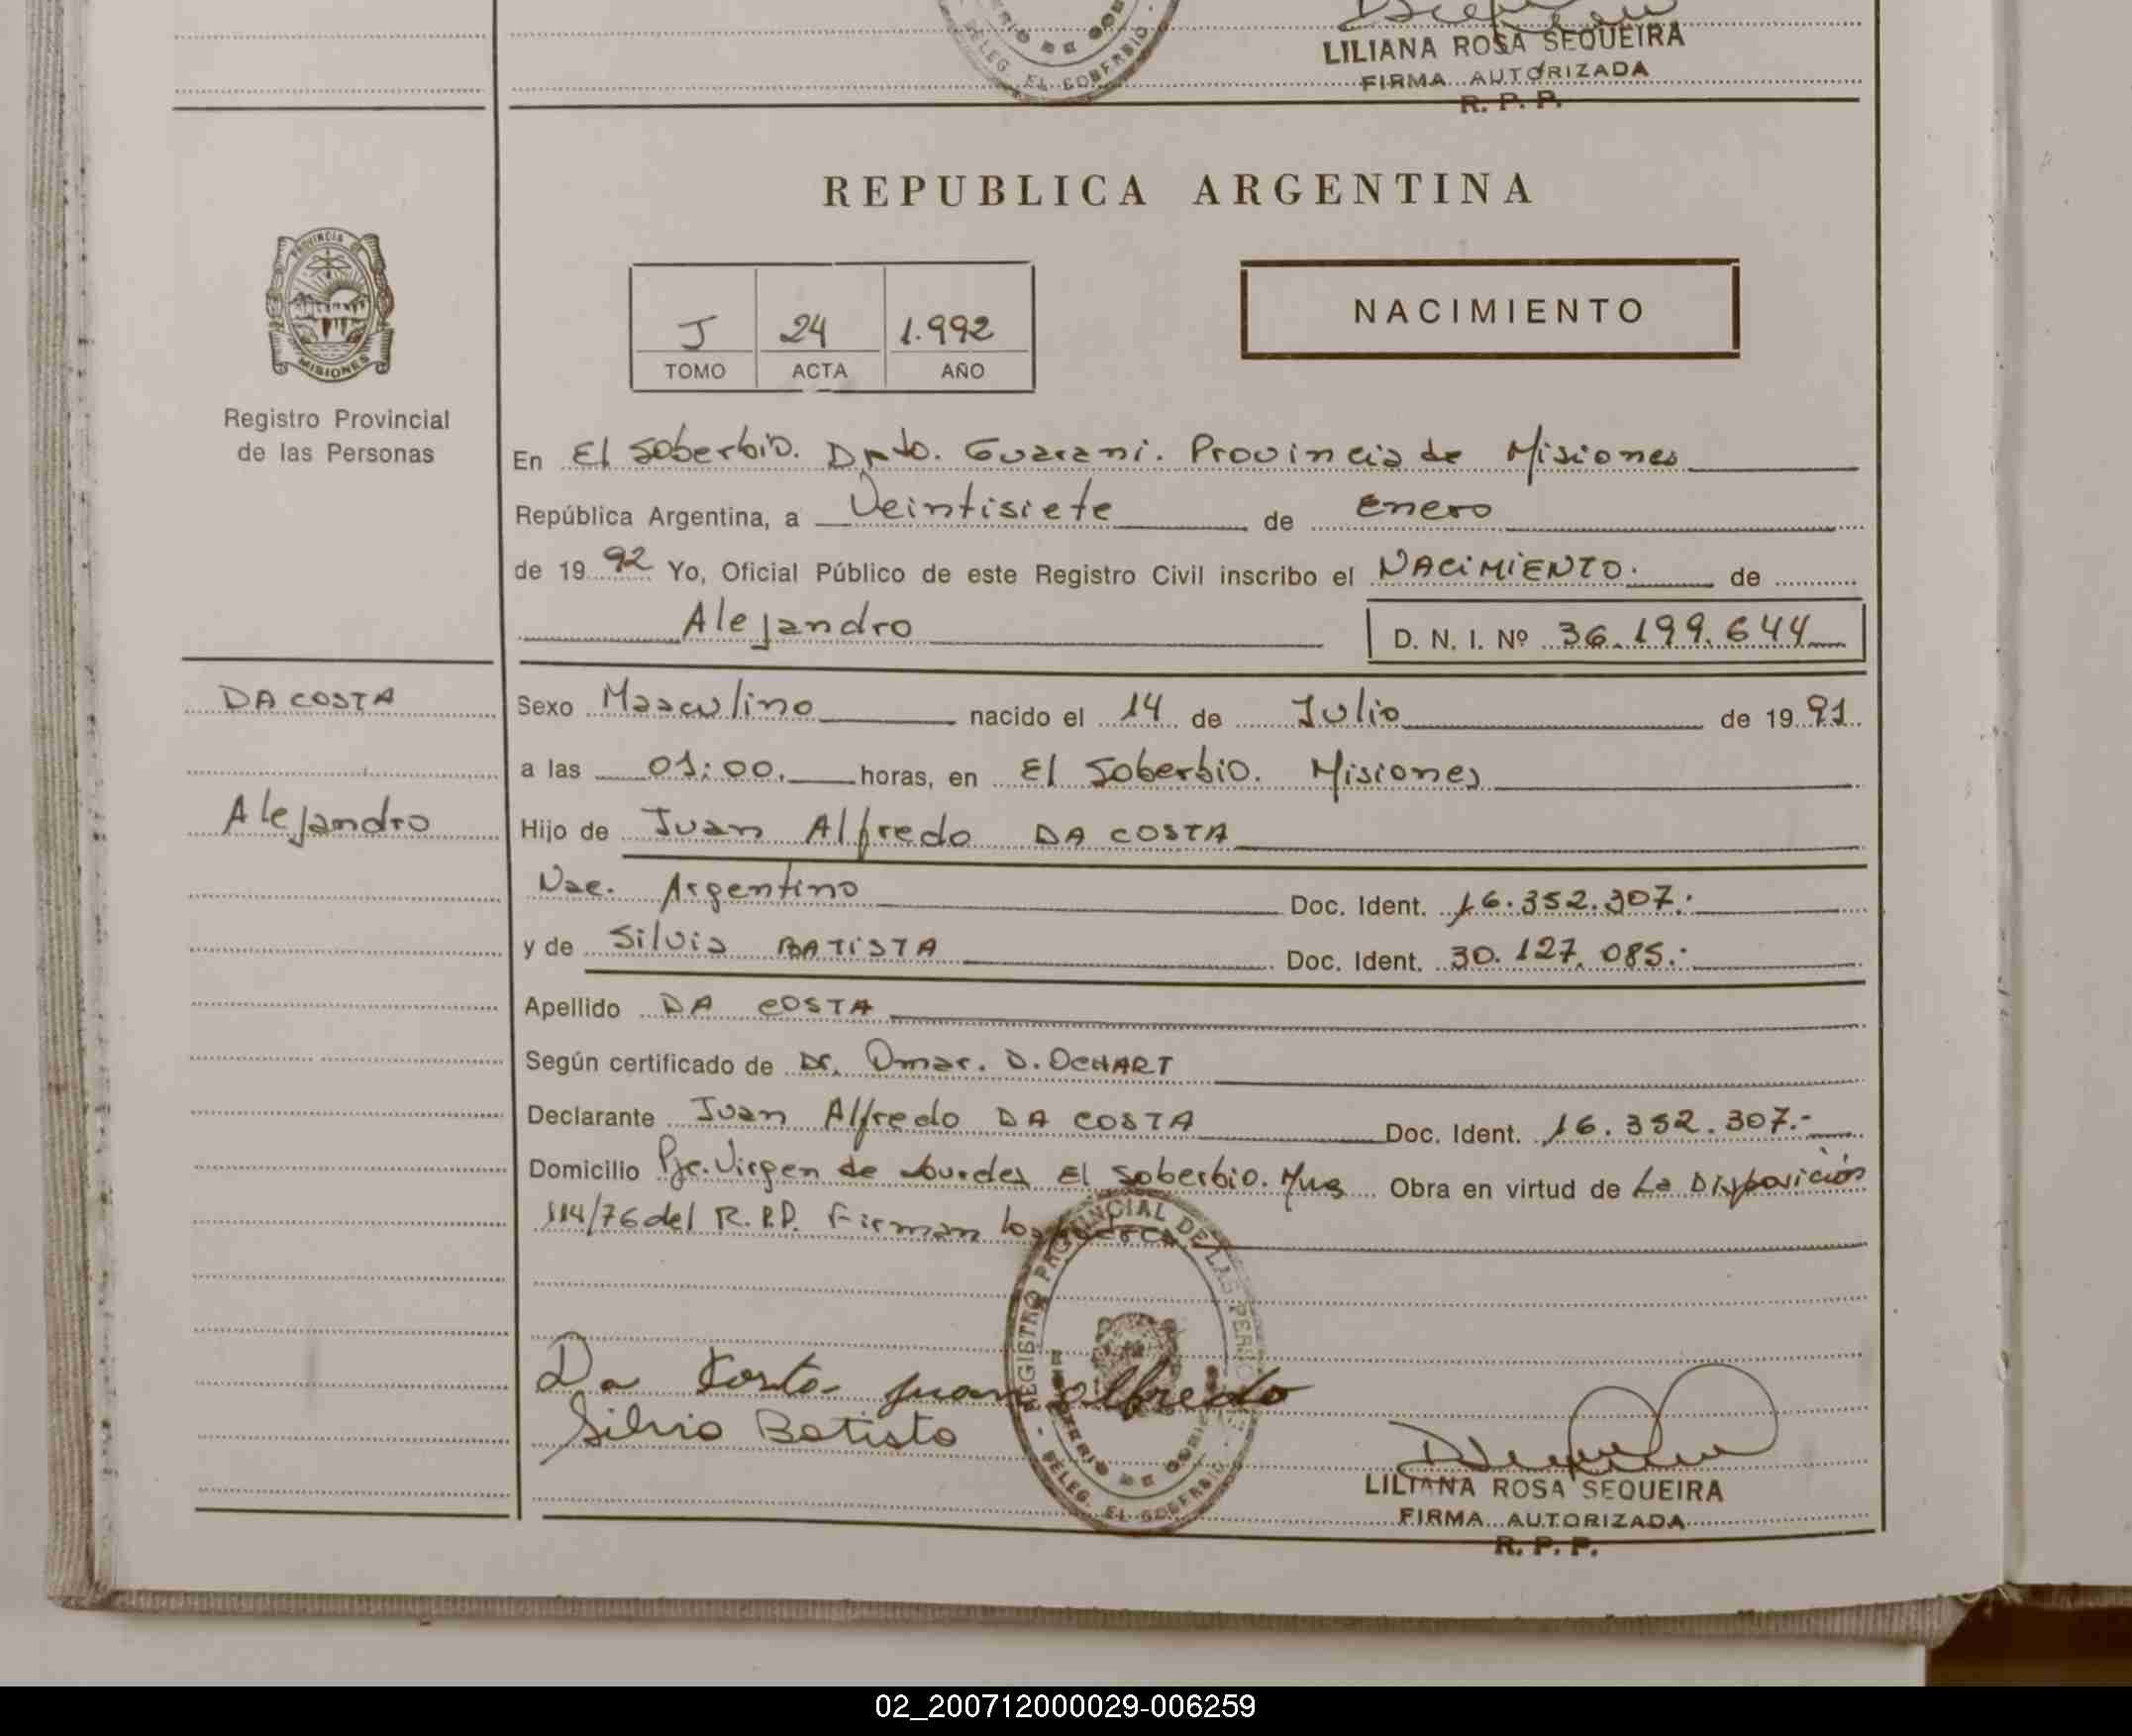 DELEG. EL SOBERBIO
LILIANA ROSA SEQUEIRA
FIRMA AUTORIZADA
R. P. P.
REPUBLICA ARGENTINA
PROVINCIA DE
MISIONES
Registro Provincial
de las Personas
J 24 1.992
TOMO ACTA AÑO
NACIMIENTO
En El Soberbio. Dpto. Guarani. Provincia de Misiones
República Argentina, a Veintisiete de Enero
de 19 92 Yo, Oficial Público de este Registro Civil inscribo el NACIMIENTO. de
Alejandro D. N. I. Nº 36.199.644
DA COSTA
Alejandro
Sexo Masculino nacido el 14 de Julio de 19 91
a las 01:00. horas, en El Soberbio. Misiones
Hijo de Juan Alfredo DA COSTA
Nac. Argentino Doc. Ident. 16.352.307.-
y de Silvia BATISTA Doc. Ident. 30.127.085.-
Apellido DA COSTA
Según certificado de Dr. Omar. D. OCHART
Declarante Juan Alfredo DA COSTA Doc. Ident. 16.352.307.-
Domicilio Pje. Virgen de Lourdes El Soberbio. Mnes Obra en virtud de La Disposición
114/76 del R.P.P. Firman los padres
REGISTRO PROVINCIAL DE LAS PERSONAS
DELEG. EL SOBERBIO
Da Kosta juan alfredo
Silvia Batista
LILIANA ROSA SEQUEIRA
FIRMA AUTORIZADA
R. P. P.
02_200712000029-006259